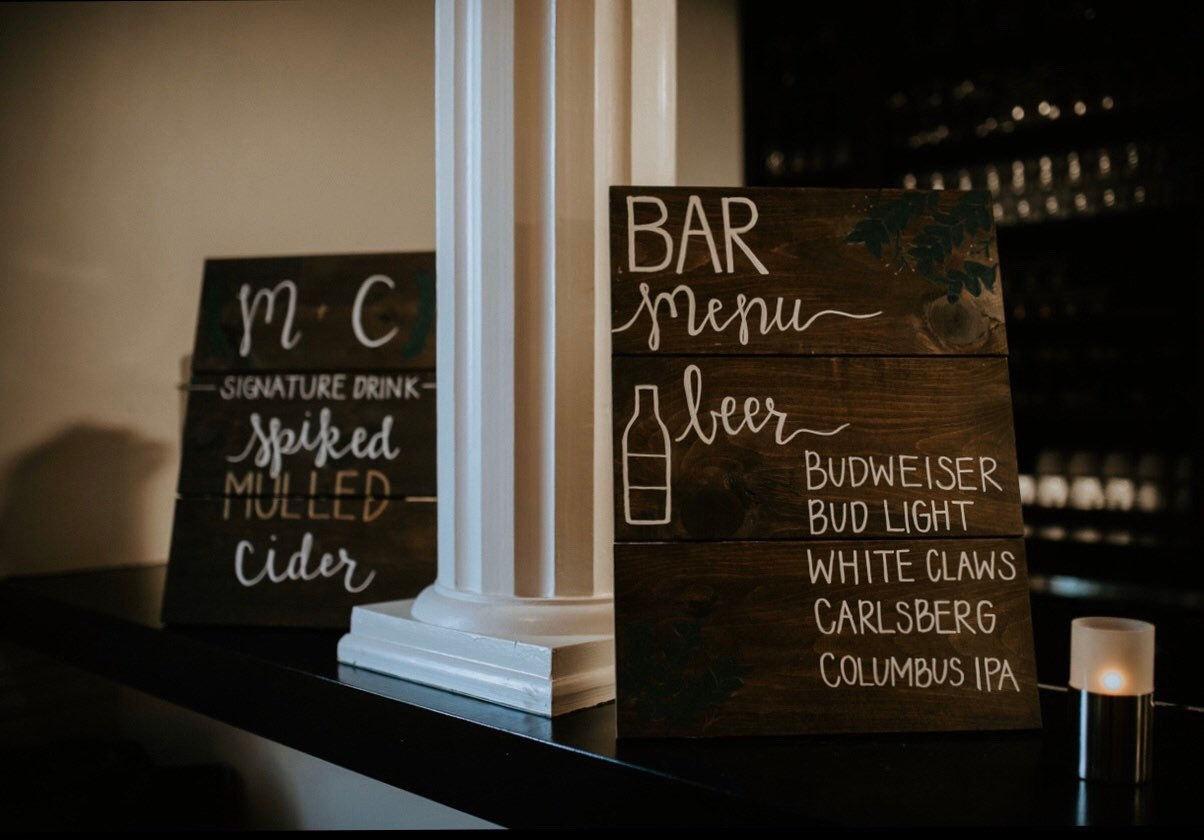 M · C
SIGNATURE DRINK
Spiked
MULLED
Cider
BAR
Menu
beer
BUDWEISER
BUD LIGHT
WHITE CLAWS
CARLSBERG
COLUMBUS IPA